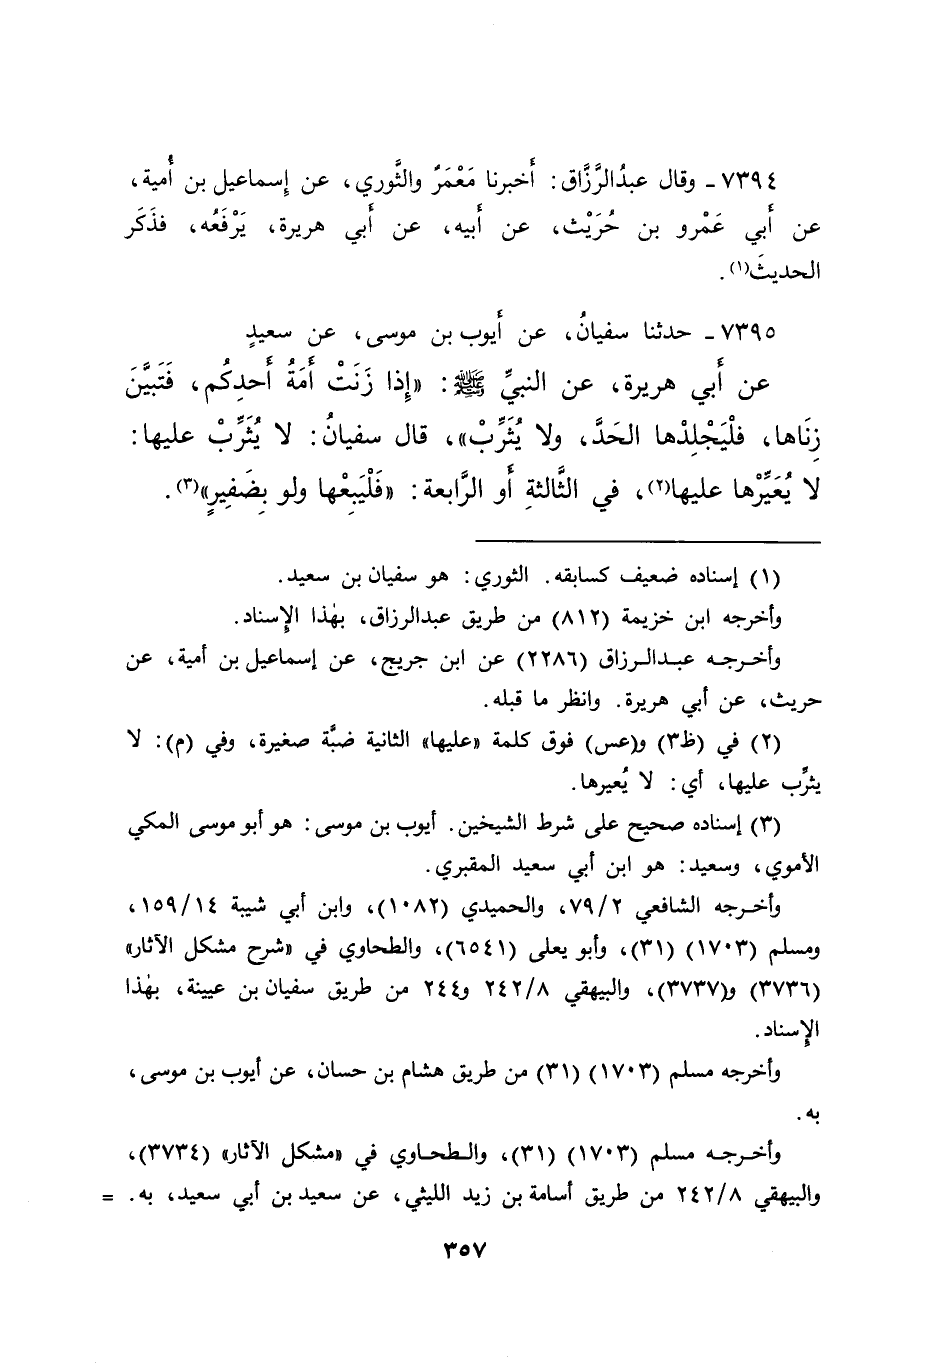 ٧٣٩٤ ـ وقال عبدُالرَّزَّاق: أَخبرنا مَعْمَرٌ والثَّوري، عن إِسماعيل بن أُمية،
عن أَبي عَمْرو بن حُرَيْث، عن أَبيه، عن أَبي هريرة، يَرْفَعُه، فذَكَر
الحديثَ(١).
٧٣٩٥ ـ حدثنا سفيانُ، عن أَيوب بن موسى، عن سعيدٍ
عن أَبي هريرة، عن النبيِّ ﷺ: «إِذا زَنَتْ أَمَةُ أَحدِكُم، فَتَبيَّنَ
زِنَاها، فلْيَجْلِدْها الحَدَّ، ولا يُثَرِّبْ»، قال سفيانُ: لا يُثَرِّبْ عليها:
لا يُعَيِّرْها عليها(٢)، في الثَّالثةِ أَو الرَّابعة: «فَلْيَبِعْها ولو بِضَفِيرٍ»(٣).
(١) إسناده ضعيف كسابقه. الثوري: هو سفيان بن سعيد.
وأخرجه ابن خزيمة (٨١٢) من طريق عبدالرزاق، بهٰذا الإِسناد.
وأخرجه عبدالرزاق (٢٢٨٦) عن ابن جريج، عن إسماعيل بن أمية، عن
حريث، عن أبي هريرة. وانظر ما قبله.
(٢) في (ظ٣) و(عس) فوق كلمة «عليها» الثانية ضبَّة صغيرة، وفي (م): لا
يثرِّب عليها، أي: لا يُعيرها.
(٣) إسناده صحيح على شرط الشيخين. أيوب بن موسى: هو أبو موسى المكي
الأموي، وسعيد: هو ابن أبي سعيد المقبري.
وأخرجه الشافعي ٧٩/٢، والحميدي (١٠٨٢)، وابن أبي شيبة ١٥٩/١٤،
ومسلم (١٧٠٣) (٣١)، وأبو يعلى (٦٥٤١)، والطحاوي في «شرح مشكل الآثار»
(٣٧٣٦) و(٣٧٣٧)، والبيهقي ٢٤٢/٨ و٢٤٤ من طريق سفيان بن عيينة، بهٰذا
الإِسناد.
وأخرجه مسلم (١٧٠٣) (٣١) من طريق هشام بن حسان، عن أيوب بن موسى،
به.
وأخرجه مسلم (١٧٠٣) (٣١)، والطحاوي في «مشكل الآثار» (٣٧٣٤)،
والبيهقي ٢٤٢/٨ من طريق أسامة بن زيد الليثي، عن سعيد بن أبي سعيد، به. =
٣٥٧